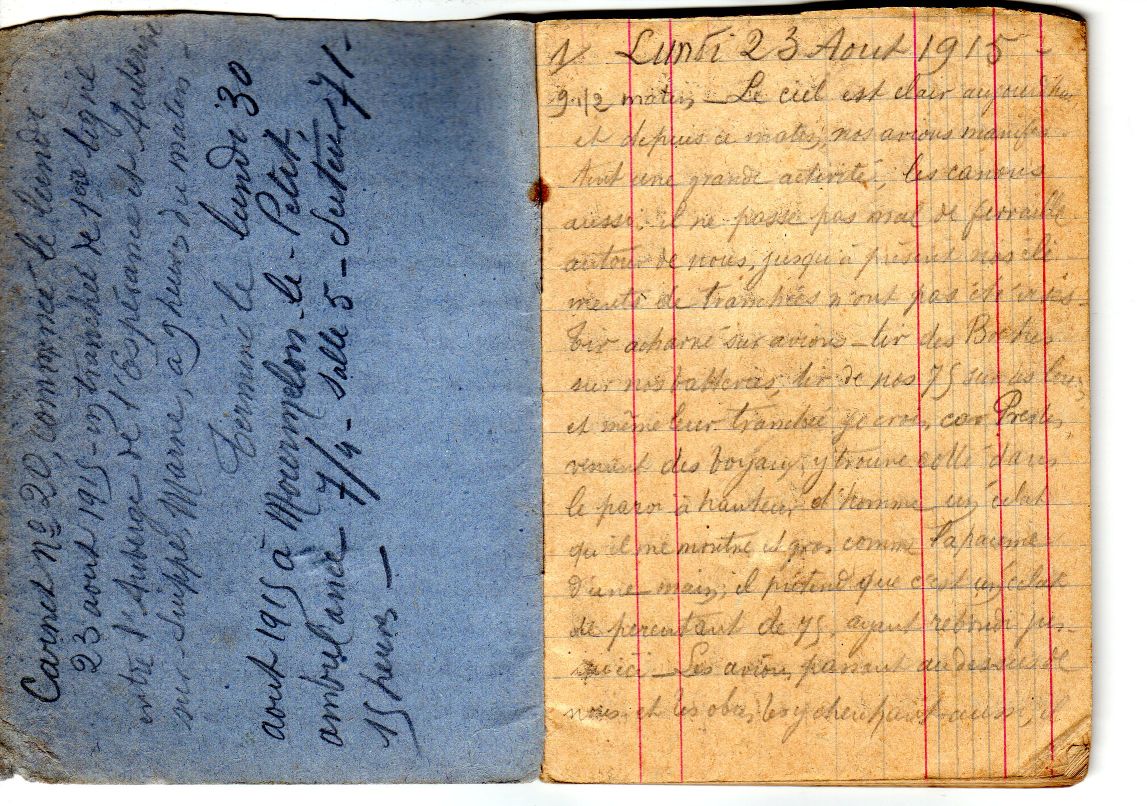 Carnet No 20, commencé le lundi
23 aout 1915 - en tranchée de 1ère ligne
entre l'Auberge de l'Espérance et Auberive
sur Suippe, Marne, à 9 heures du matin -
Terminé le lundi 30
aout 1915 à Mourmelon-le-Petit
ambulance 7/4 - Salle 5 - Secteur 71 -
15 heures -
1/ Lundi 23 Aout 1915 -
9 1/2 matin - Le ciel est clair aujourd'hui
et depuis ce matin, nos avions manifes-
tent une grande activité, les canons
aussi. il ne passe pas mal de ferraille
autour de nous, jusqu'à présent nos élé
ments de tranchées n'ont pas été visés -
Tir acharné sur avions - tir des Boches
sur nos batteries, tir de nos 75 sur les leurs,
et même leur tranchée je crois, car
venant des boyaux, y trouve collé dans
le paroi à hauteur d'homme un éclat
qu'il me montre et gros comme la paume
d'une main; il prétend que c'est un éclat
de percutant de 75, ayant rebondi jus-
qu'ici - Les avions passent au dessus de
nous, et les obus les y cherchent aussi, il